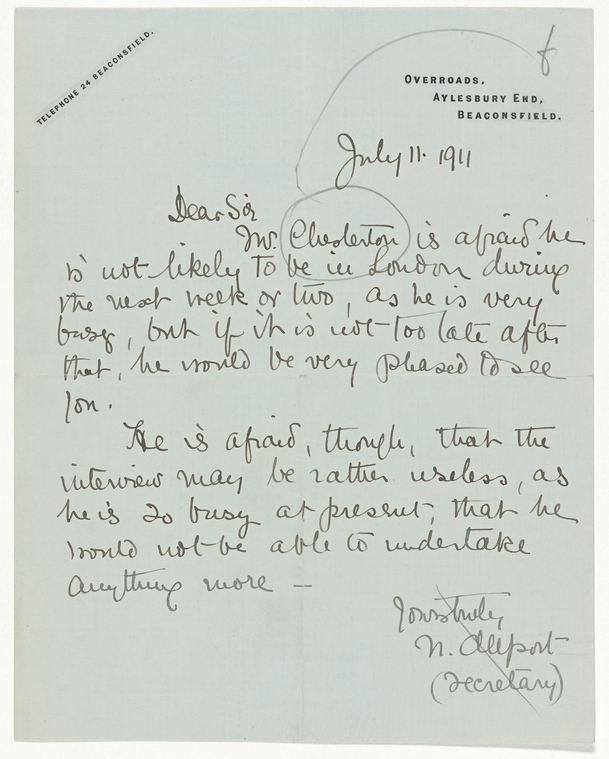 TELEPHONE 24 BEACONSFIELD.
OVERROADS,
AYLESBURY END,
BEACONSFIELD.
July 11. 1911
Dear Sir
Mr. Chesterton is afraid he
is not likely to be in London during
the next week or two, as he is very
busy, but if it is not too late after
that, he would be very pleased to see
you.
He is afraid, though, that the
interview may be rather useless, as
he is so busy at present, that he
would not be able to undertake
anything more —
Yours truly
N. Allport
(Secretary)